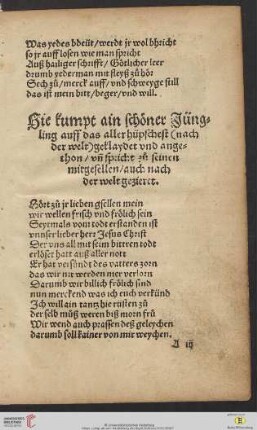 Was yedes bdeüt/werdt jr wol bhricht
so jr auff losen wie man spricht
Auß hailiger schrifft/Götlicher leer
drumb yederman mit fleyß zů hör
Sech zů/merck auff/vnd schweyge still
das ist mein bitt/beger/vnd will.
Hie kumpt ain schöner Jüng-
ling auff das aller hüpschest (nach
der welt) geklaydet vnd ange-
thon/vñ spricht zů seinen
mitgesellen/auch nach
der welt gezieret.
Hört zů jr lieben gsellen mein
wir wellen frisch vnd frölich sein
Seytmals vom todt erstanden ist
vnnser lieber herr Jesus Christ
Der vns all mit seim bittren todt
erlöset hatt auß aller nott
Er hat versünt des vatters zorn
das wir nit werden mer verlorn
Darumb wir billich frölich sind
nun merckend was ich euch verkünd
Ich will ain tantz hie rüsten zů
der selb můß weren biß morn frů
Wir wend auch prassen deß geleychen
darumb soll kainer von mir weychen.
A iij